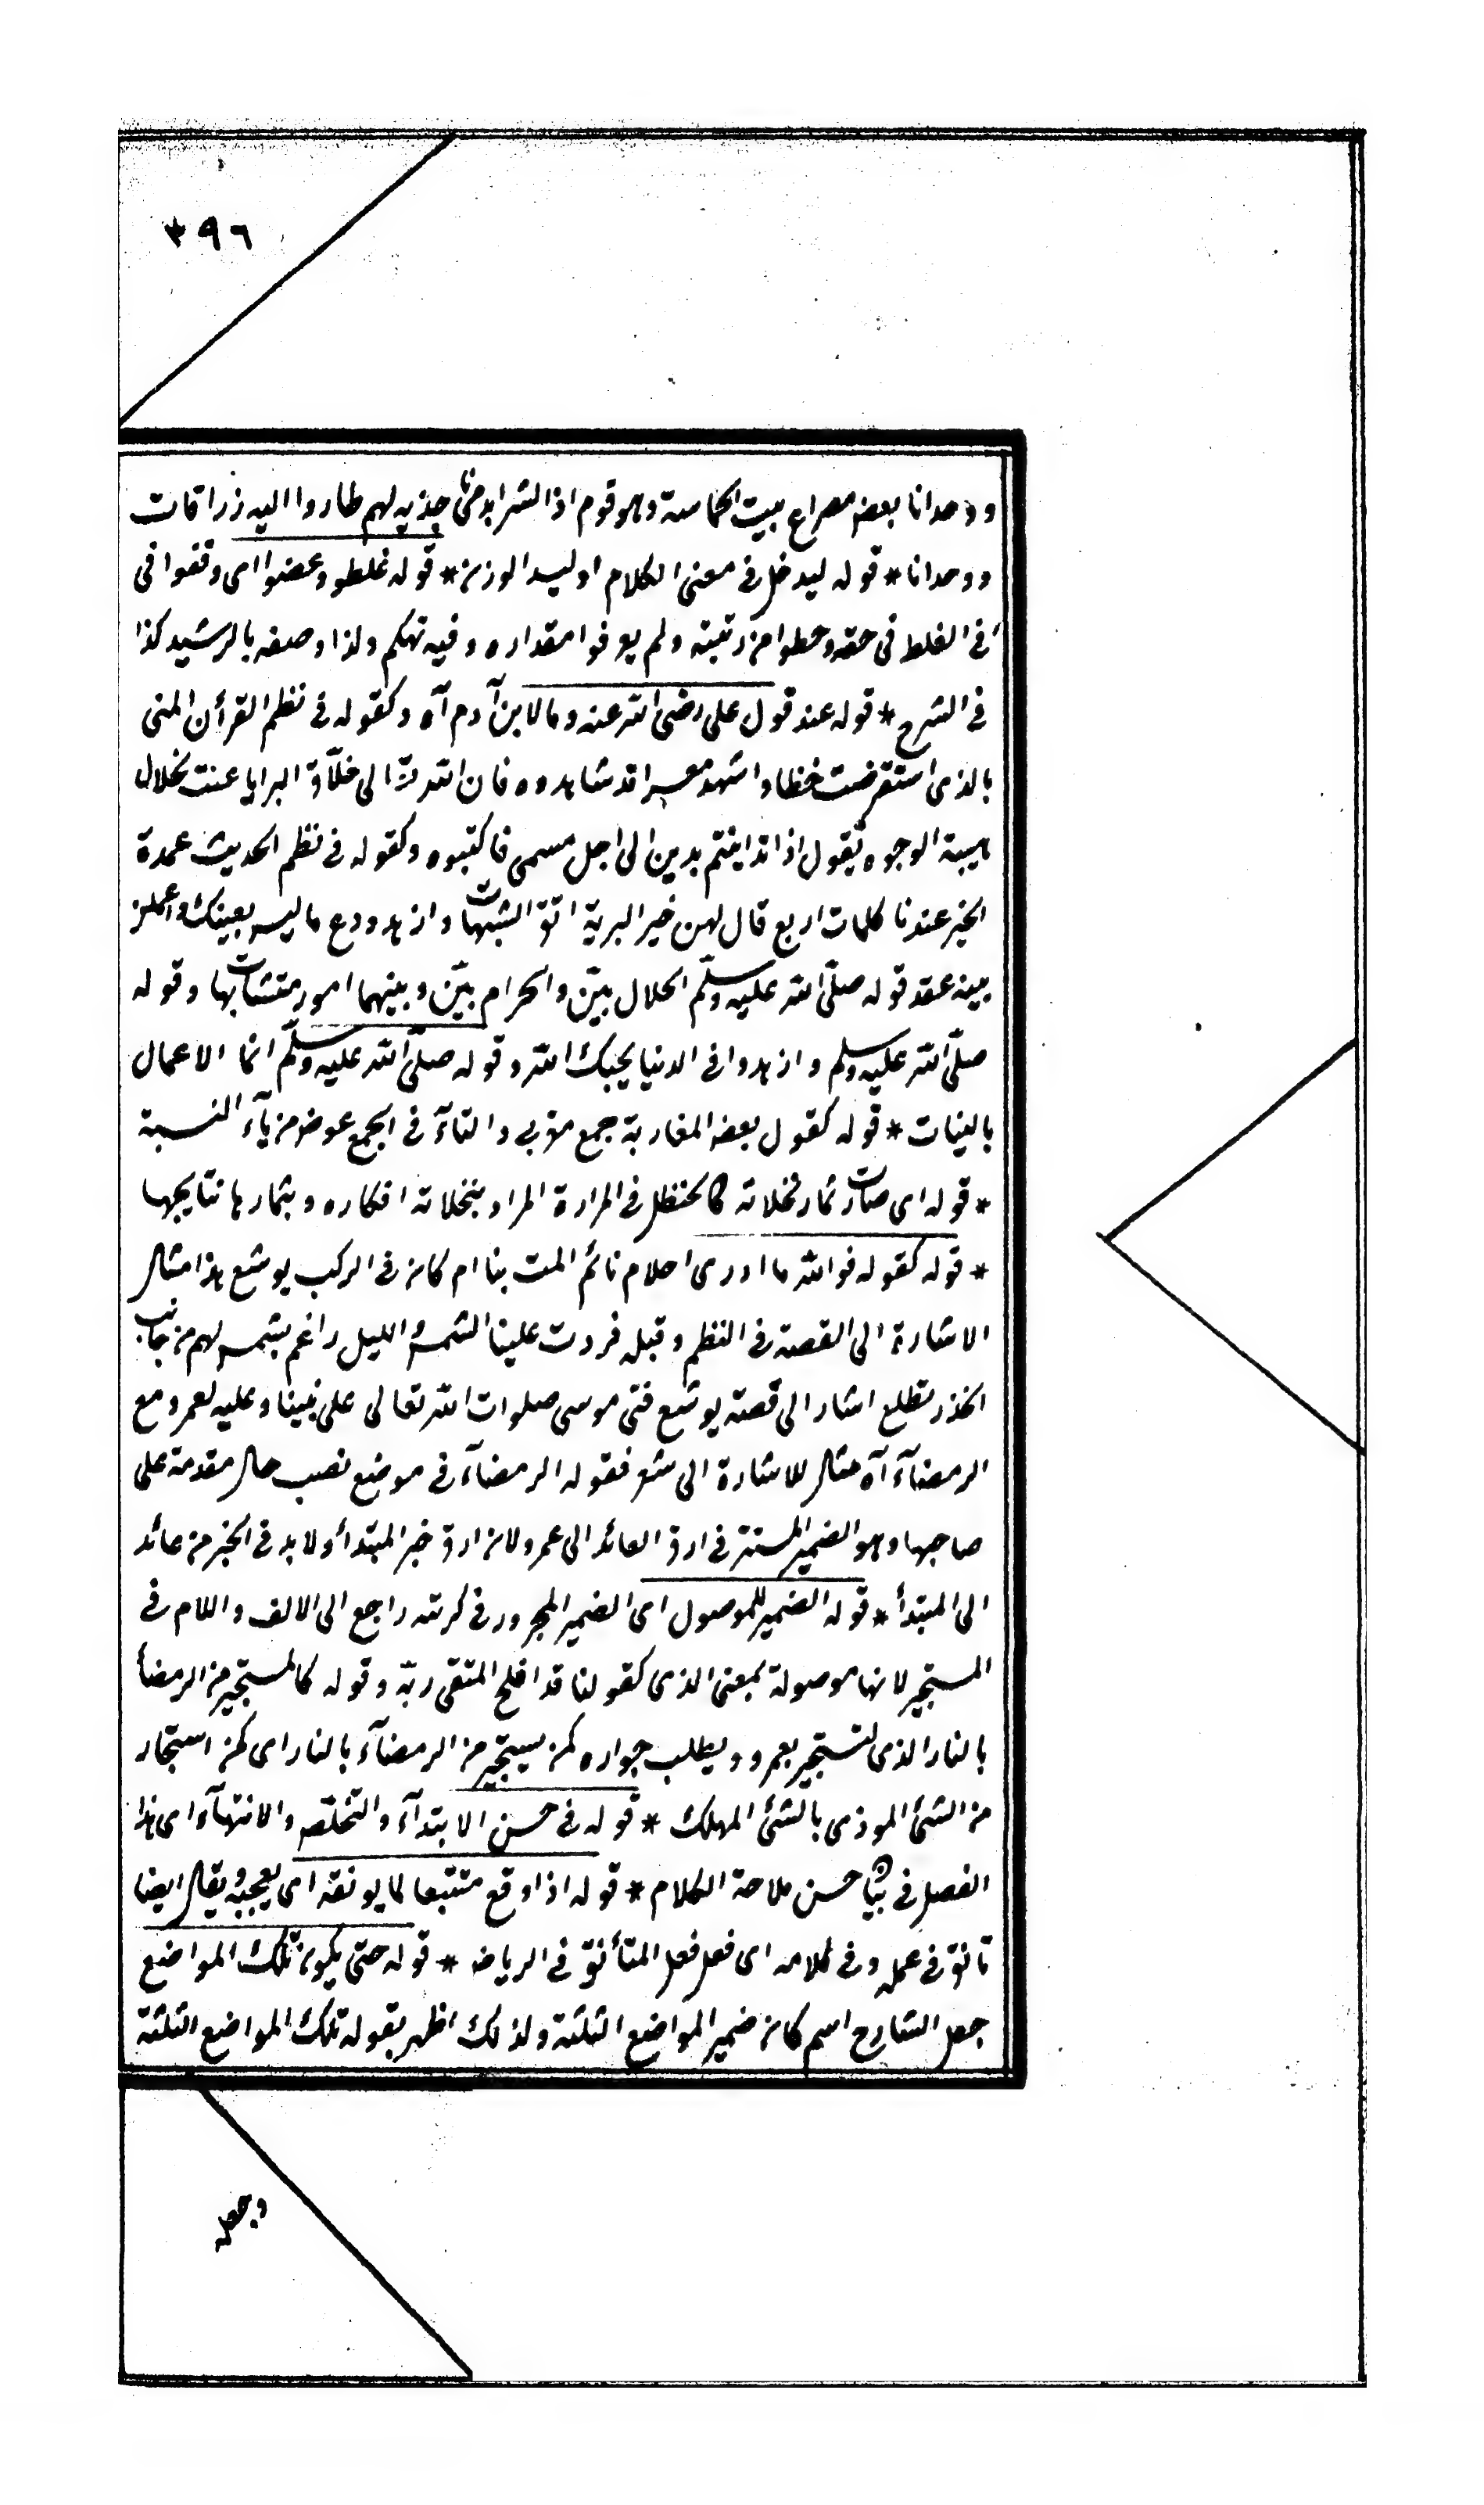 ٣٩٦
ووحدانا بعض مصراع بيت الحماسة وهو قوم اذا الشر ابدى ناجذيه لهم طاروا اليه زرافات
ووحدانا * قوله ليدخل في معنى الكلام او ليد الوزن * قوله غلطو وعضوا اى وقفوا في
في الغلط في حقه وحطوا من رتبته ولم يعرفوا مقداره وفيه تهكم ولذا وصفه بالرشيد كذا
في الشرح * قوله عند قول على رضى الله عنه وما لابن آدم آه وكقوله في نظم القرأن انلنى
بالذى استقرضت خطا واشهد معشرا قد شاهدوه فان الله خلاق البرايا عنت لجلال
هيبة الوجوه يقول اذا تداينتم بدين الى اجل مسمى فاكتبوه وكقوله في نظم الحديث عمدة
الخير عندنا كلمات اربع قال لهن خير البرية اتق الشبهات وازهد ودع ما ليس يعينك واعملن
بنية عقد قوله صلّى الله عليه وسلّم الحلال بيّن والحرام بيّن وبينهما امور متشابهات وقوله
صلّى الله عليه وسلم وازهدوا في الدنيا يحبك الله وقوله صلّى الله عليه وسلّم انما الاعمال
بالنيات * قوله كقول بعض المغاربة جمع مغربى والتاء في الجمع عوض من ياء النسبة
* قوله اى صارت ثمار نخلاته كالحنظل في المرارة المراد بنخلاته افكاره وبثمارها نتايجها
* قوله كقوله فوالله ما ادرى احلام نائم المت بنا ام كان في الركب يوشع هذا مثال
الاشارة الى القصة في النظم وقبله فردت علينا الشمس والليل راغم بشمس لهم من جانب
الخدر تطلع اشار الى قصة يوشع فتى موسى صلوات الله تعالى على نبينا وعليه لعمرو مع
الرمضاء آه مثال للاشارة الى شعر فقوله الرمضاء في موضع نصب حال مقدمة على
صاحبها وهو الضمير المستتر في ارق العائد الى عمرو لان ارق خبر المبتدأ ولا بد في الخبر من عائد
الى المبتدأ * قوله الضمير للموصول اى الضمير المجرور في كربته راجع الى الالف واللام في
المستجير لانها موصولة بمعنى الذى كقولنا قد افلح المتقى ربّه وقوله كالمستجير من الرمضاء
بالنار الذى لتستجير بعمرو ويطلب جواره كمن يستجير من الرمضاء بالنار اى كمن استجار
من الشئ الموذى بالشئ المهلك * قوله في حسن الابتداء والتخلص والانتهاء اى هذا
الفصل في بيان حسن ملاحة الكلام * قوله اذا وقع متتبعا لما يونقه اى يعجبه ويقال ايضا
تانق في عمله وفي كلامه اى فعل فعل المتأنق في الرياض * قوله حتى يكون تلك المواضع
جعل الشارح اسم كان ضمير المواضع الثلثة ولذلك اظهر بقوله تلك المواضع الثلثة
وجعل